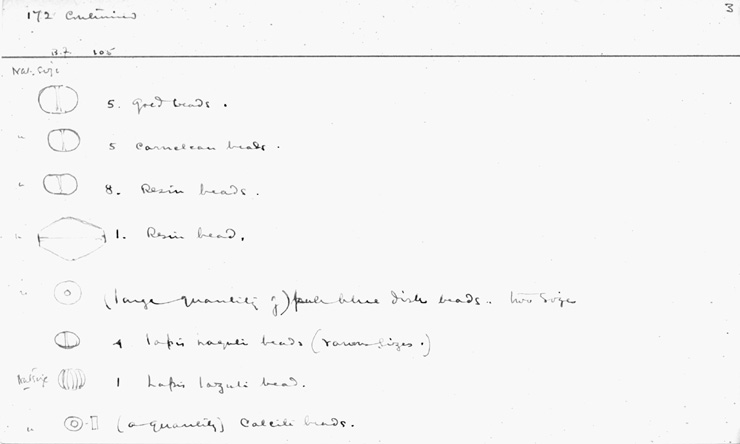 172 Continued
3
B.7 105
Nat. Size
5. Gold beads.
" 5 Carnelean beads.
" 8. Resin beads.
" 1. Resin bead.
" (large quantity of) pale blue disk beads.. two Size
4 lapis lazuli beads (various sizes.)
Nat Size 1 Lapis lazuli bead.
" (a quantity) Calcite beads.